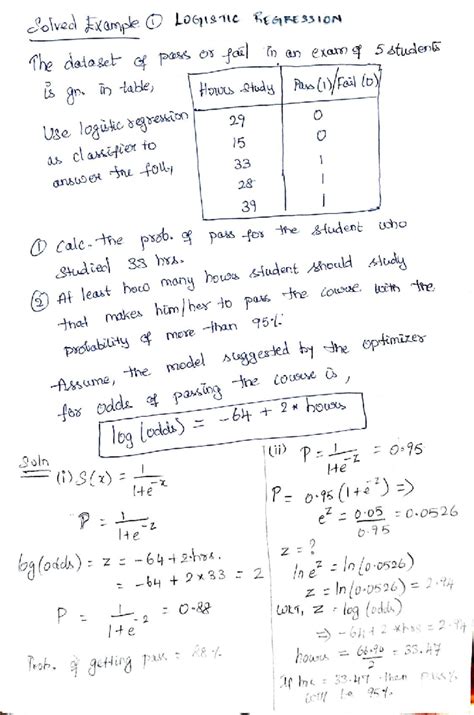 Solved Example ① LOGISTIC REGRESSION
The dataset of pass or fail in an exam of 5 students
is gn. in table,
Hours Study | Pass(1)/Fail(0)
29 | 0
15 | 0
33 | 1
28 | 1
39 | 1
Use logistic regression
as classifier to
answer the foll,
① Calc. the prob. of pass for the student who
studied 33 hrs.
② At least how many hours student should study
that makes him/her to pass the course with the
probability of more than 95%.
Assume, the model suggested by the optimizer
for odds of passing the course is,
log(odds) = -64 + 2 * hours
Soln
(i) S(x) = 1/(1+e^-x)
P = 1/(1+e^-z)
log(odds) = z = -64+2·hrs.
= -64 + 2×33 = 2
P = 1/(1+e^-2) = 0.88
Prob. of getting pass = 88%
(ii) P = 1/(1+e^-z) = 0.95
P = 0.95(1+e^-z) =>
e^z = 0.05/0.95 = 0.0526
z = ?
ln e^z = ln(0.0526)
z = ln(0.0526) = 2.94
WKT, z = log(odds)
=> -64+2*hrs = 2.94
hours = 66.94/2 = 33.47
If hrs = 33.47 then pass
will be 95%